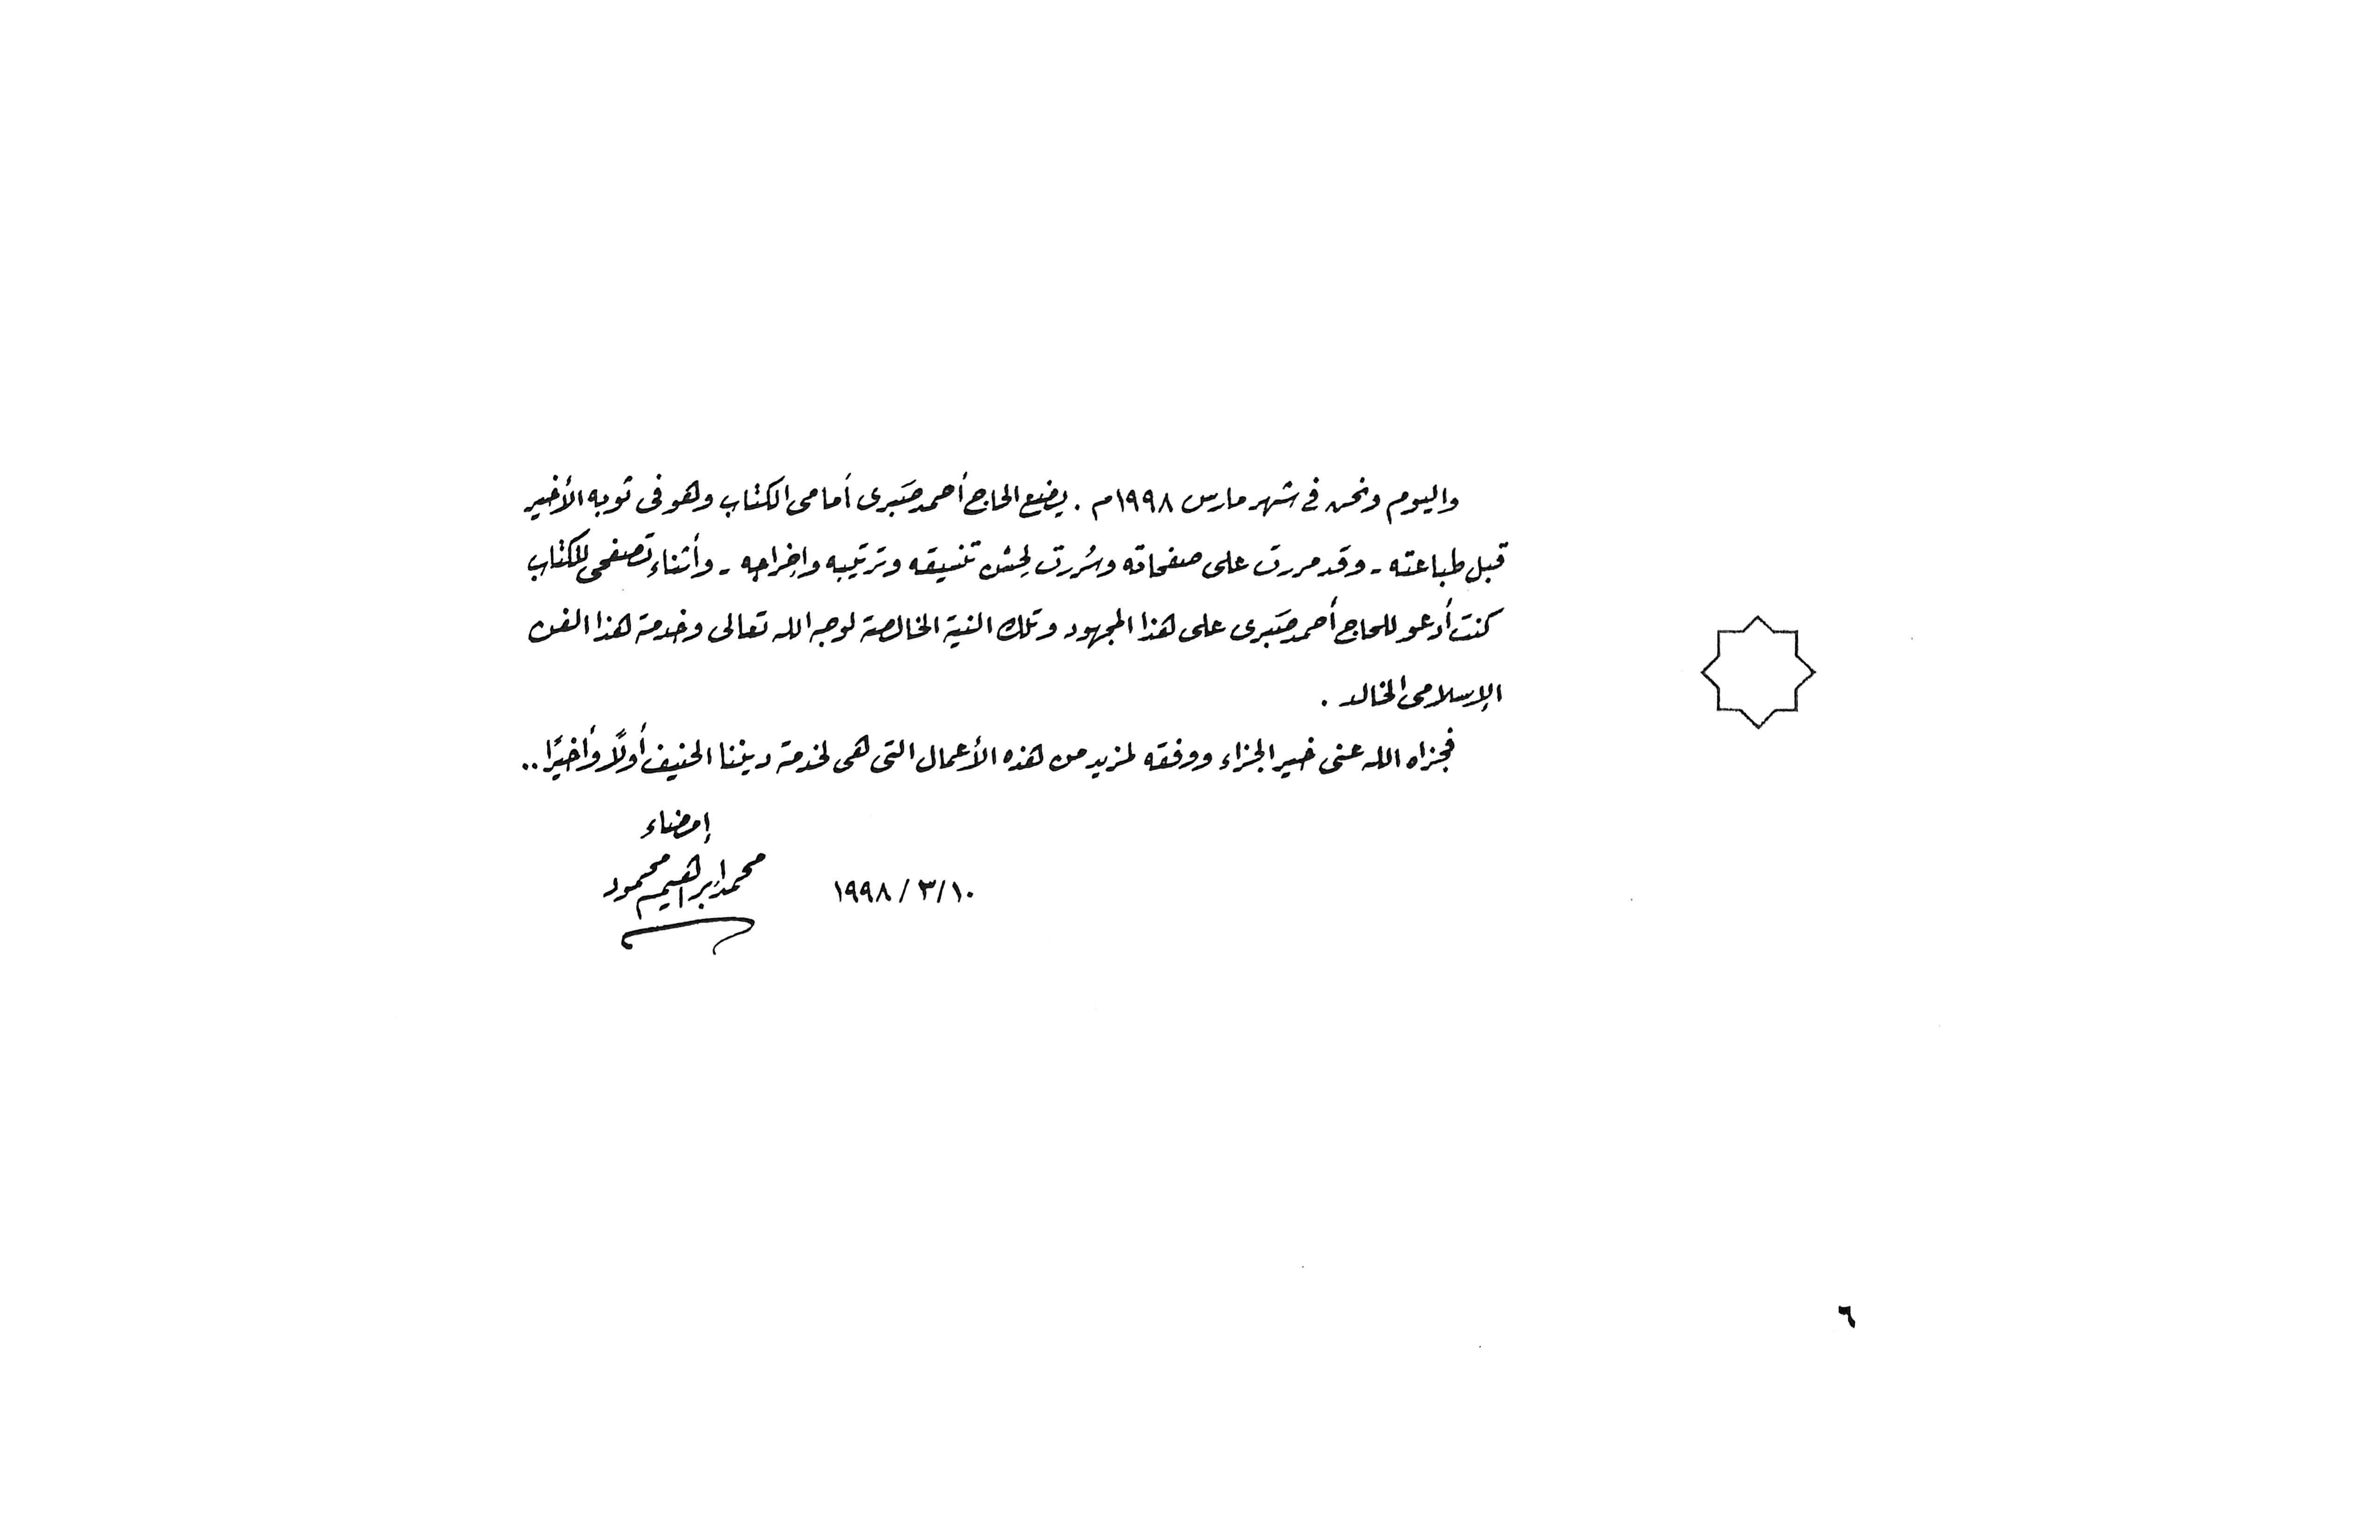 واليوم ونحن فى شهر مارس ١٩٩٨م . يضع الحاج أحمد صَبرى أمامى الكتاب وهو فى ثوبه الأخير
قبل طباعته - وقد مررت على صفحاته وسُررت لحسن تنسيقه وترتيبه وإخراجه - وأثناء تصفحى للكتاب
كنت أدعو للحاج أحمد صَبرى على هذا المجهود وتلك النية الخالصة لوجه الله تعالى وخدمة هذا الفن
الإسلامى الخالد .
فجزاه الله عنى خير الجزاء ووفقه لمزيد من هذه الأعمال التى هى لخدمة ديننا الحنيف أولًا وأخيرًا ..
إمضاء
محمد إبراهيم محمود
١٩٩٨/٣/١٠
٦